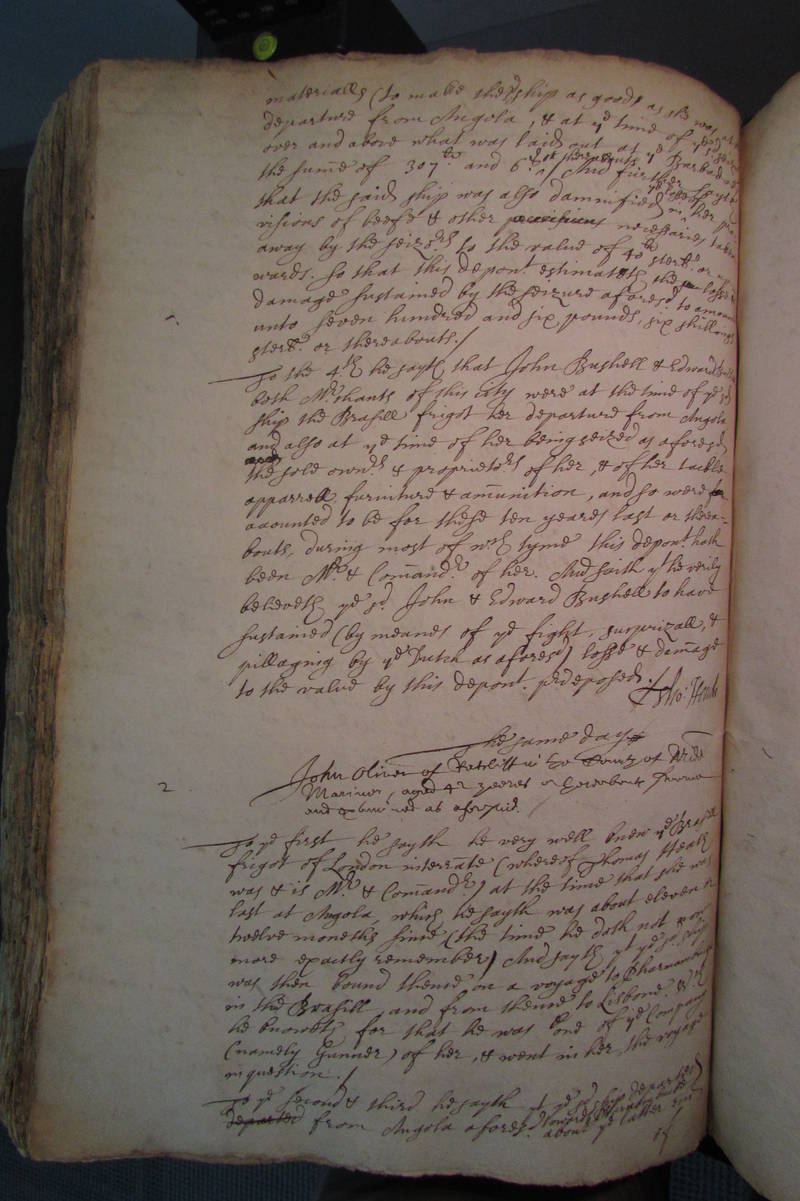 materialls (to make the sd ship as goods as she was at her
departure from Angola, & at ye time of ye sd seiz
over and above what was laid out at ye Barbad
the sume of 307 li and 6s or thereabouts. And further sayth
that the said ship was also damnified in her pro
visions of beefe & other provisions necessaries taken
away by the seizors to the value of 40 li sterl. or up
wards. So that this depont. estimateth the losse &
damage sustained by the seizure aforesd to amount
unto seven hundred and six pounds, six shillings
sterl. or thereabouts./
To the 4th he sayth that John Bushell & Edward Bushell
both Mrchants of this city were at the time of ye sd
ship the Brasill frigot her departure from Angola
and also at ye time of her being seized as aforesd
the sole ownrs & proprietors of her, & of her tackle
apparrell furniture & amunition, and so were
accounted to be for these ten yeares last or therea-
bouts, during most of wch tyme this depont. hath
been Mr. & Comandr. of her. And saith yt he verily
beleiveth ye sd John & Edward Bushell to have
sustained (by meanes of ye fight, surprizall, &
pillaging by ye Dutch as aforesd) losse & damage
to the value by this depont. predeposed.
The same day
2 John Oliver of Ratcliff in the County of Midd
Mariner, aged 42 yeares or thereabouts sworne
and examined as aforesaid.
To ye first he sayth he very well knew ye Brasill
frigot of London interrate (whereof Thomas Heath
was & is Mr. & Comandr.) at the time that she was
last at Angola, which he sayth was about eleven or
twelve moneths since (the time he doth not now
more exactly remember) And sayth yt ye sd ship
was then bound thence on a voyage to Pharnambuck
in the Brasill, and from thence to Lisbone. Wch
he knoweth for that he was one of ye Company
(namely Gunner) of her, & went in her the voyage
in question./
To ye second & third he sayth yt ye sd ship departed
departed from Angola aforesd towards Pharnambuck about ye latter end
of